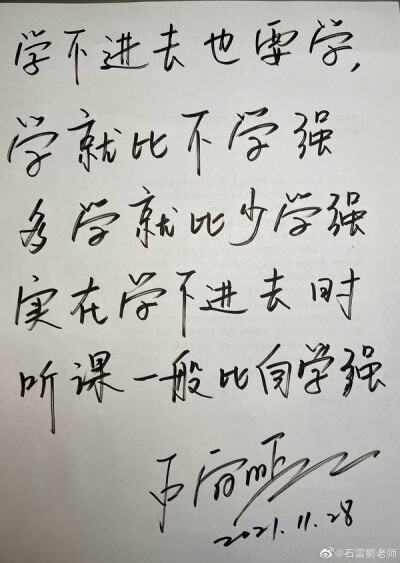 学不进去也要学，
学就比不学强
多学就比少学强
实在学不进去时
听课一般比自学强
石雷鹏
2021.11.28
@石雷鹏老师